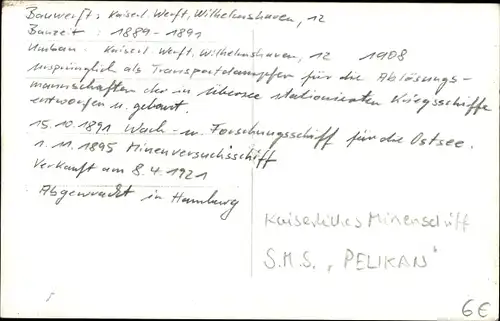 Bauwerft: Kaiserl. Werft, Wilhelmshaven, 12
Bauzeit : 1889-1891
Umbau: Kaiserl. Werft, Wilhelmshaven, 12 1908
ursprünglich als Transportdampfer für die Ablösungs-
mannschaften der in Übersee stationierten Kriegsschiffe
entworfen u. gebaut.
15.10.1891 Wach- u. Forschungsschiff für die Ostsee.
1.11.1895 Minenversuchsschiff
Verkauft am 8.4.1921
Abgewrackt in Hamburg
Kaiserliches Minenschiff
S.M.S. „PELIKAN"
6€